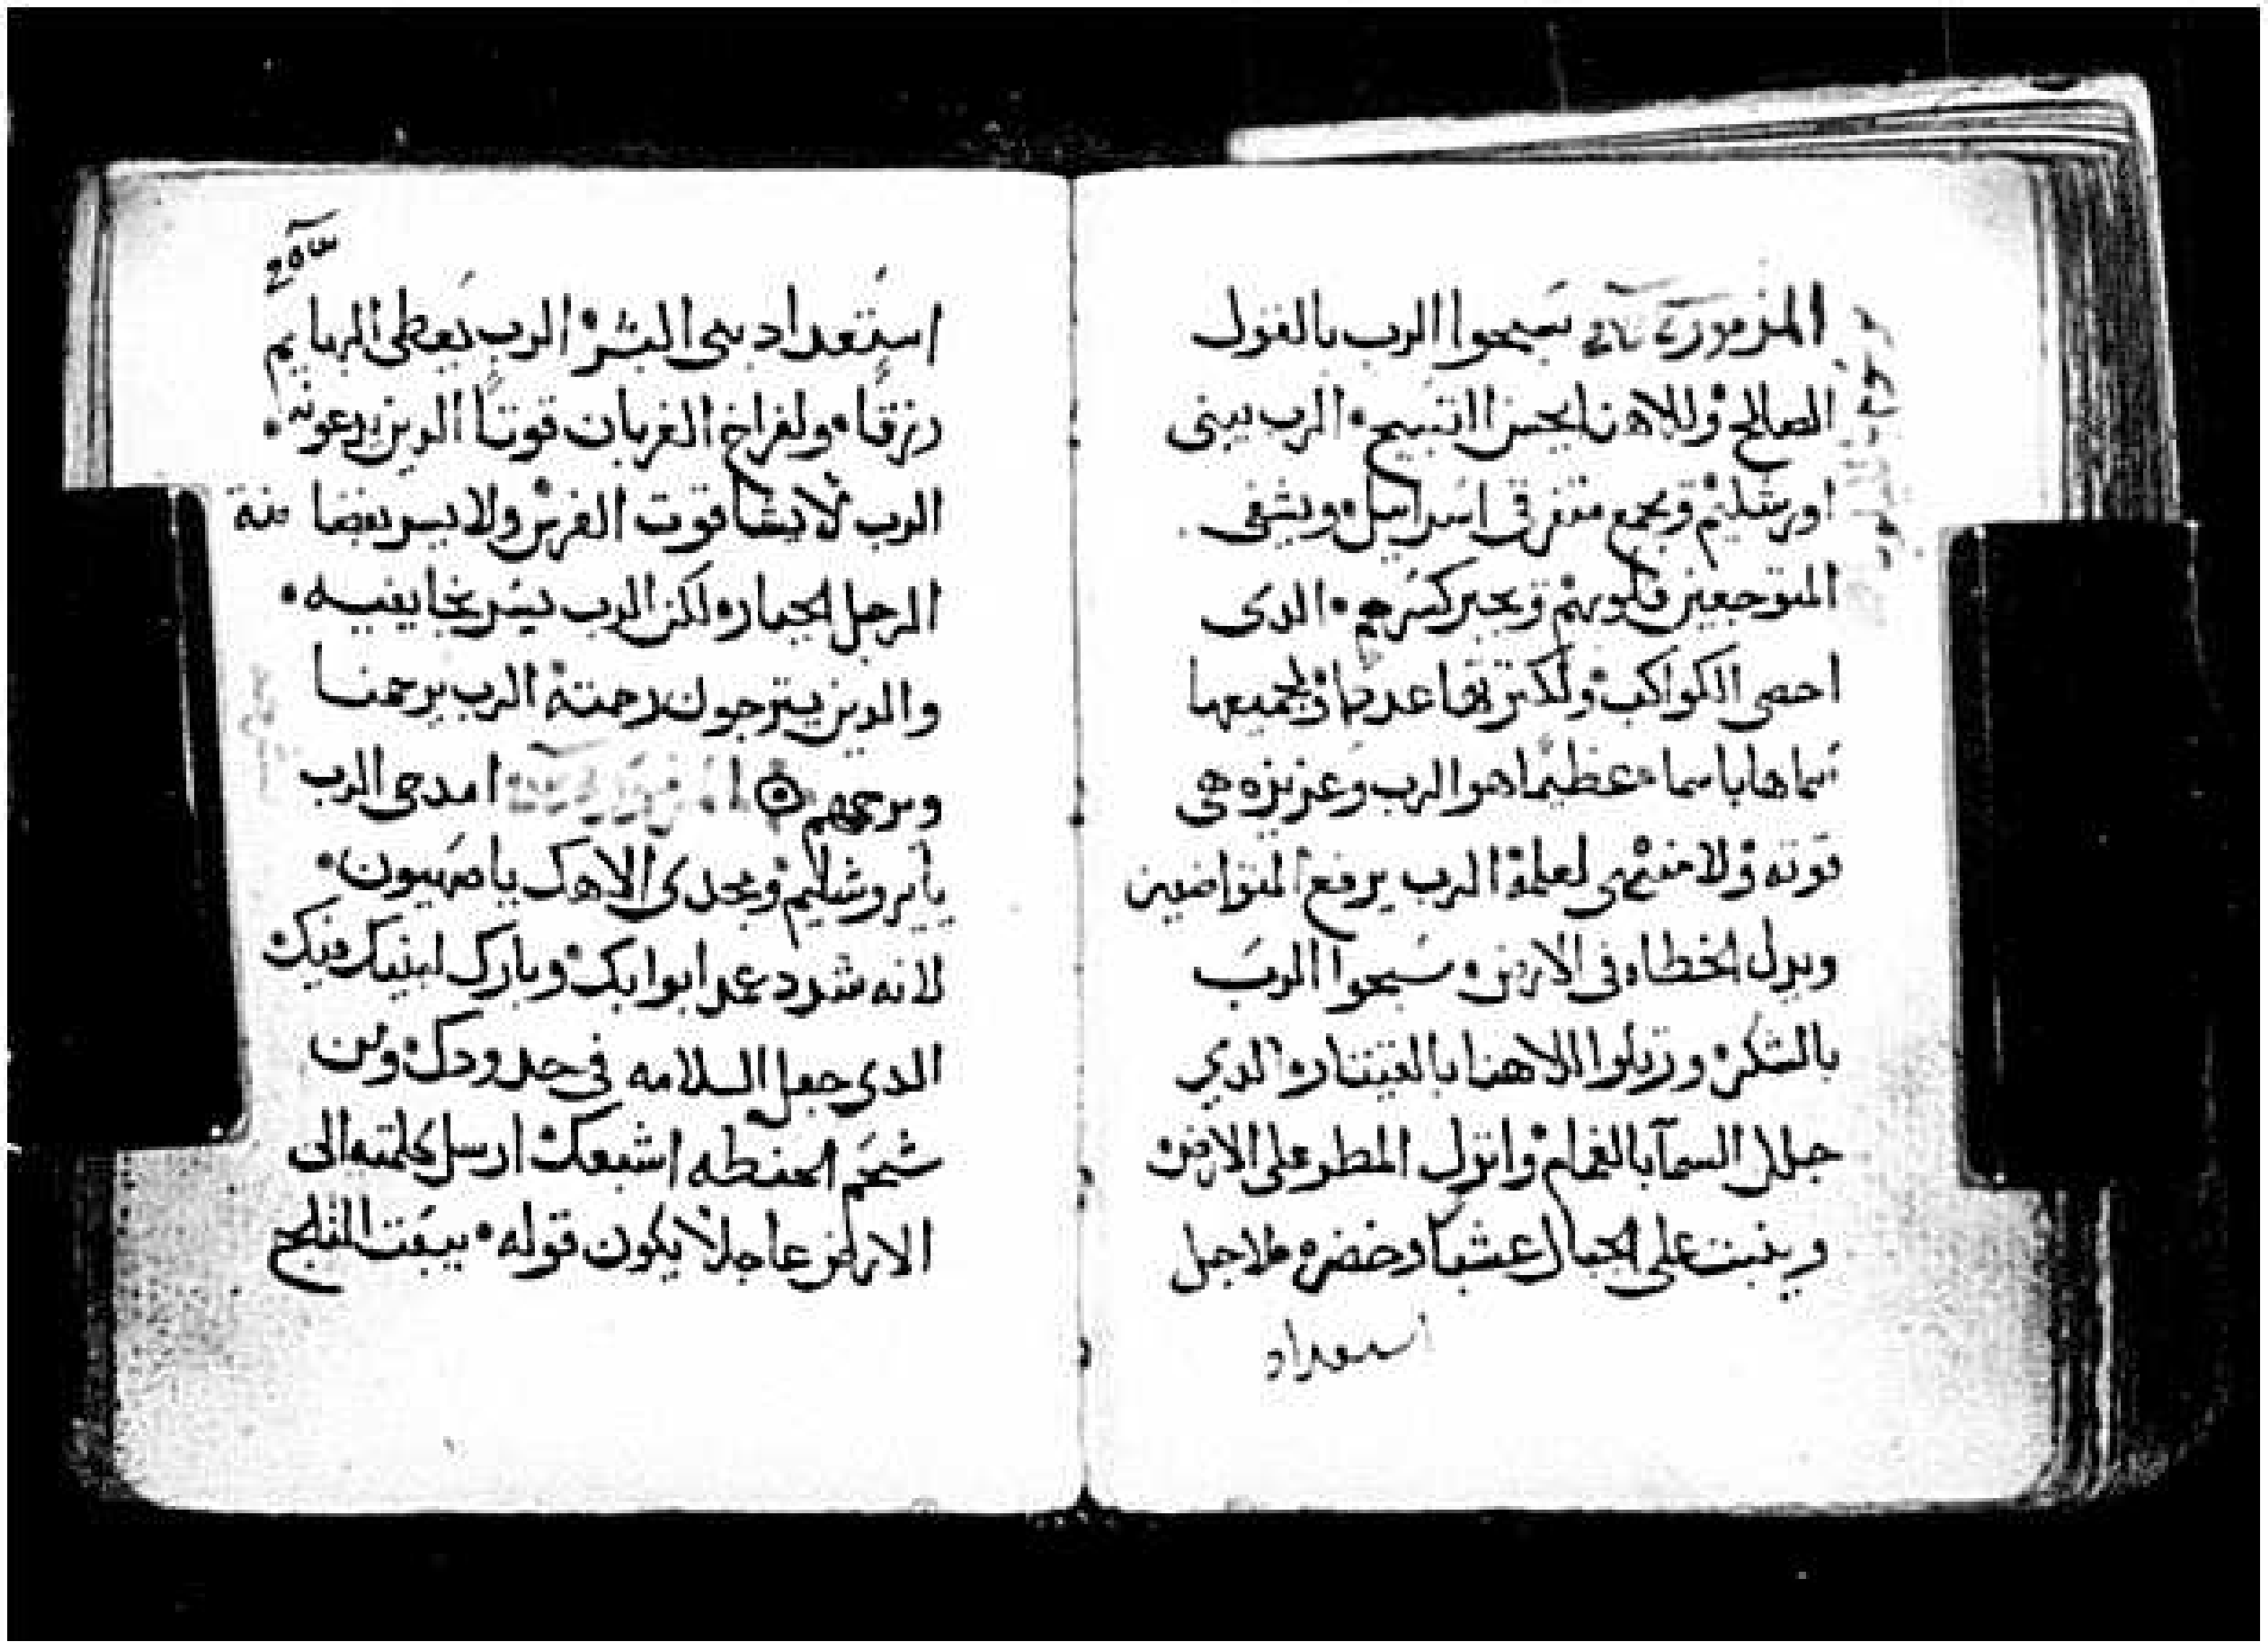 المزمور سبحوا الرب بالقول
الصالح وللاهنا يحسن التسبيح الرب يبنى
اورشليم ويجمع متفرقى اسراييل ويشفى
المتوجعين قلوبهم ويجبر كسرهم الدى
احصى الكواكب ولكترتها عددها ولجميعها
سماها باسما عظيما هو الرب وعزيزه هى
قوته ولا منتهى لعلمه الرب يرفع المتواضعين
ويدل الخطاه فى الارض سبحوا الرب
بالشكر ورتلوا لالاهنا بالقيتاره الدي
جلل السمآ بالغمام وانزل المطر على الارض
وينبت على الجبال عشبا وخضره لاجل
استعداد
استعداد بنى البشر الرب يعطى البهايم
رزقا ولفراخ الغربان قوتا الدين يدعونه
الرب لا يشا قوت الفرس ولا يسر بعضا منة
الرجل الجبار لكن الرب يسر بخايفيه
والدين يترجون رحمته الرب يرحمنا
ويرحمهم امدحى الرب
يايروشليم ومجدى الاهك ياصهيون
لانه شدد عمد ابوابك وبارك لبنيك فيك
الدى جعل السلامه فى حدودك ومن
شحم الحنطه اشبعك ارسل كلمته الى
الارض عاجلا يكون قوله يبعت الثلج